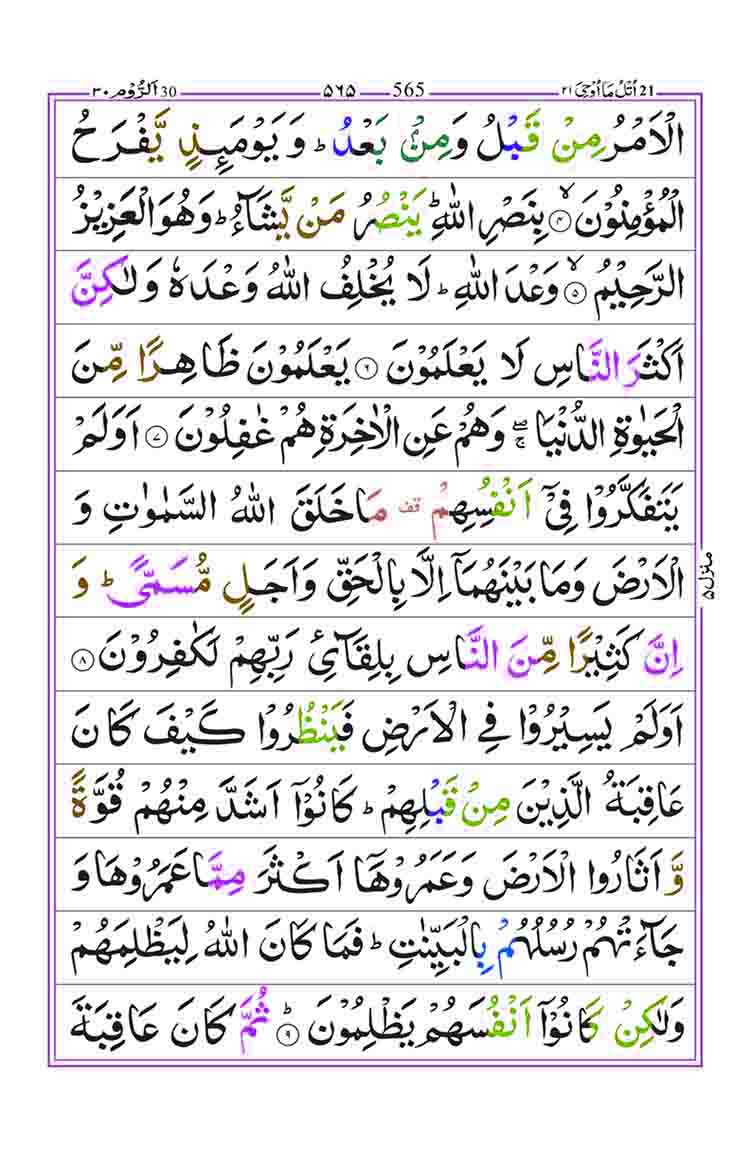 اُتْلُ مَاۤ اُوْحِیَ ٢١ 21 565 ٥٦٥ اَلرُّوْم ٣٠ 30
الْاَمْرُ مِنْ قَبْلُ وَمِنْۢ بَعْدُ ؕ وَ يَوْمَئِذٍ يَّفْرَحُ
الْمُؤْمِنُوْنَ ۙ‏﴿۴﴾ بِنَصْرِ اللّٰهِ ؕ يَنْصُرُ مَنْ يَّشَآءُ ؕ وَهُوَ الْعَزِيْزُ
الرَّحِيْمُ ۙ‏﴿۵﴾ وَعْدَ اللّٰهِ ؕ لَا يُخْلِفُ اللّٰهُ وَعْدَهٗ وَلٰـكِنَّ
اَكْثَرَ النَّاسِ لَا يَعْلَمُوْنَ‏ ﴿۶﴾ يَعْلَمُوْنَ ظَاهِرًا مِّنَ
الْحَيٰوةِ الدُّنْيَا ۖۚ وَهُمْ عَنِ الْاٰخِرَةِ هُمْ غٰفِلُوْنَ‏ ﴿۷﴾ اَوَلَمْ
يَتَفَكَّرُوْا فِىْۤ اَنْفُسِهِمْ قف مَا خَلَقَ اللّٰهُ السَّمٰوٰتِ وَ
الْاَرْضَ وَمَا بَيْنَهُمَاۤ اِلَّا بِالْحَقِّ وَاَجَلٍ مُّسَمًّى ؕ وَ
اِنَّ كَثِيْرًا مِّنَ النَّاسِ بِلِقَآئِ رَبِّهِمْ لَكٰفِرُوْنَ‏ ﴿۸﴾
اَوَلَمْ يَسِيْرُوْا فِى الْاَرْضِ فَيَنْظُرُوْا كَيْفَ كَانَ
عَاقِبَةُ الَّذِيْنَ مِنْ قَبْلِهِمْ ؕ كَانُوْۤا اَشَدَّ مِنْهُمْ قُوَّةً
وَّاَثَارُوا الْاَرْضَ وَعَمَرُوْهَاۤ اَكْثَرَ مِمَّا عَمَرُوْهَا وَ
جَآءَتْهُمْ رُسُلُهُمْ بِالْبَيِّنٰتِ ؕ فَمَا كَانَ اللّٰهُ لِيَظْلِمَهُمْ
وَلٰـكِنْ كَانُوْۤا اَنْفُسَهُمْ يَظْلِمُوْنَ ؕ‏ ﴿۹﴾ ثُمَّ كَانَ عَاقِبَةَ
منزل ۵